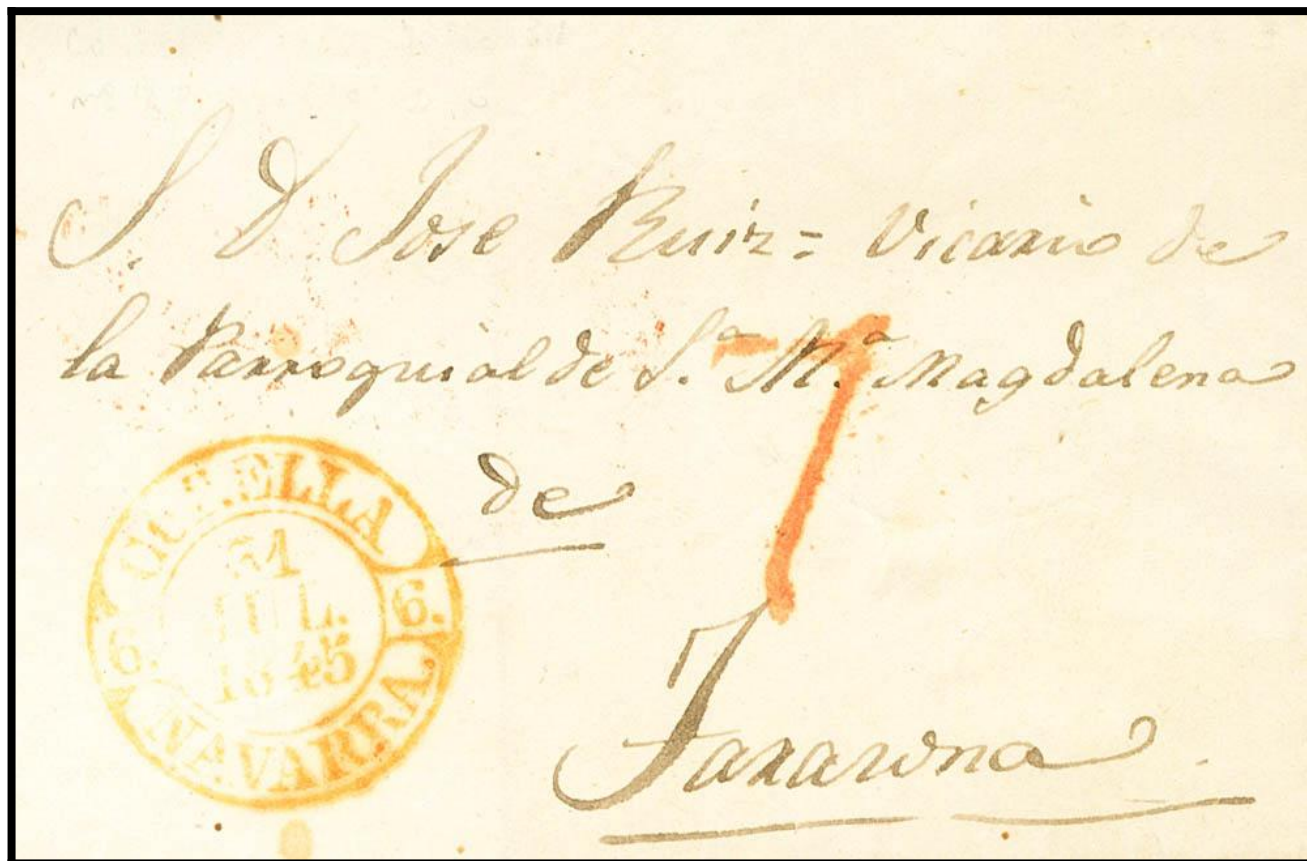 S. D Jose Ruiz = Vicario de
la Parroquial de S.ª M.ª Magdalena
de
Tarazona
CORELLA
31
JUL.
1845
6. 6.
NAVARRA.